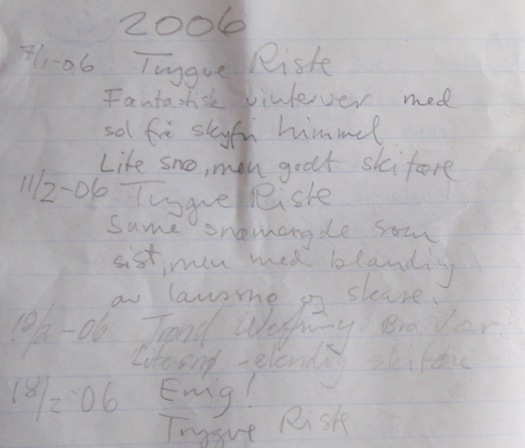 2006
7/1-06 Trygve Riste
Fantastisk vintervær med
sol frå skyfri himmel
Lite snø, men godt skiføre
11/2-06 Trygve Riste
Same snømengde som
sist, men med blanding
av laussnø og skare.
/2-06 Trond Bra Vær!
Lite snø - elendig skiføre
18/2-06 Enig!
Trygve Riste